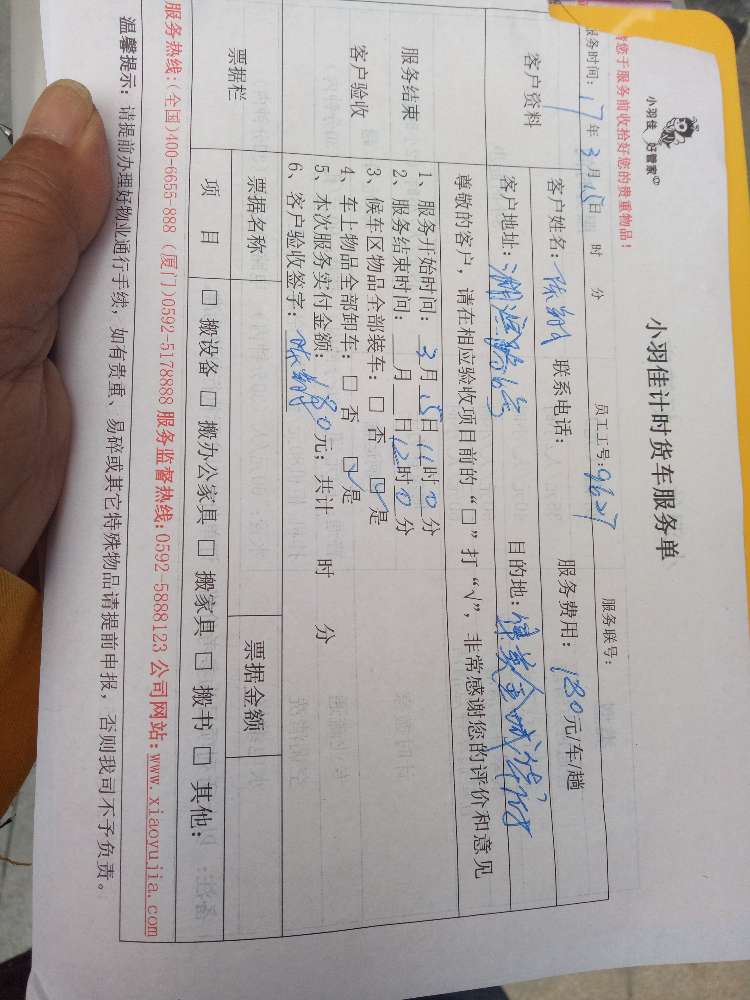 小羽佳 好管家
小羽佳计时货车服务单
请您于服务前收拾好您的贵重物品！
服务时间：17年3月15日 时 分 员工工号：9627 服务联号：
客户资料
客户姓名： 联系电话： 服务费用：180元/车/趟
客户地址： 目的地：
尊敬的客户，请在相应验收项目前的“□”打“√”，非常感谢您的评价和意见
服务结束
客户验收
1、服务开始时间：3月15日11时0分
2、服务结束时间： 月 日12时0分
3、候车区物品全部装车：□ 否 ☑是
4、车上物品全部卸车：□ 否 ☑是
5、本次服务实付金额：180元；共计 时 分
6、客户验收签字：
票据栏
票据名称 票据金额
项 目 □ 搬设备 □ 搬办公家具 □ 搬家具 □ 搬书 □ 其他：
服务热线：(全国)400-6655-888 (厦门)0592-5178888 服务监督热线：0592-5888123 公司网站：www.xiaoyujia.com
温馨提示：请提前办理好物业通行手续，如有贵重、易碎或其它特殊物品请提前申报，否则我司不予负责。